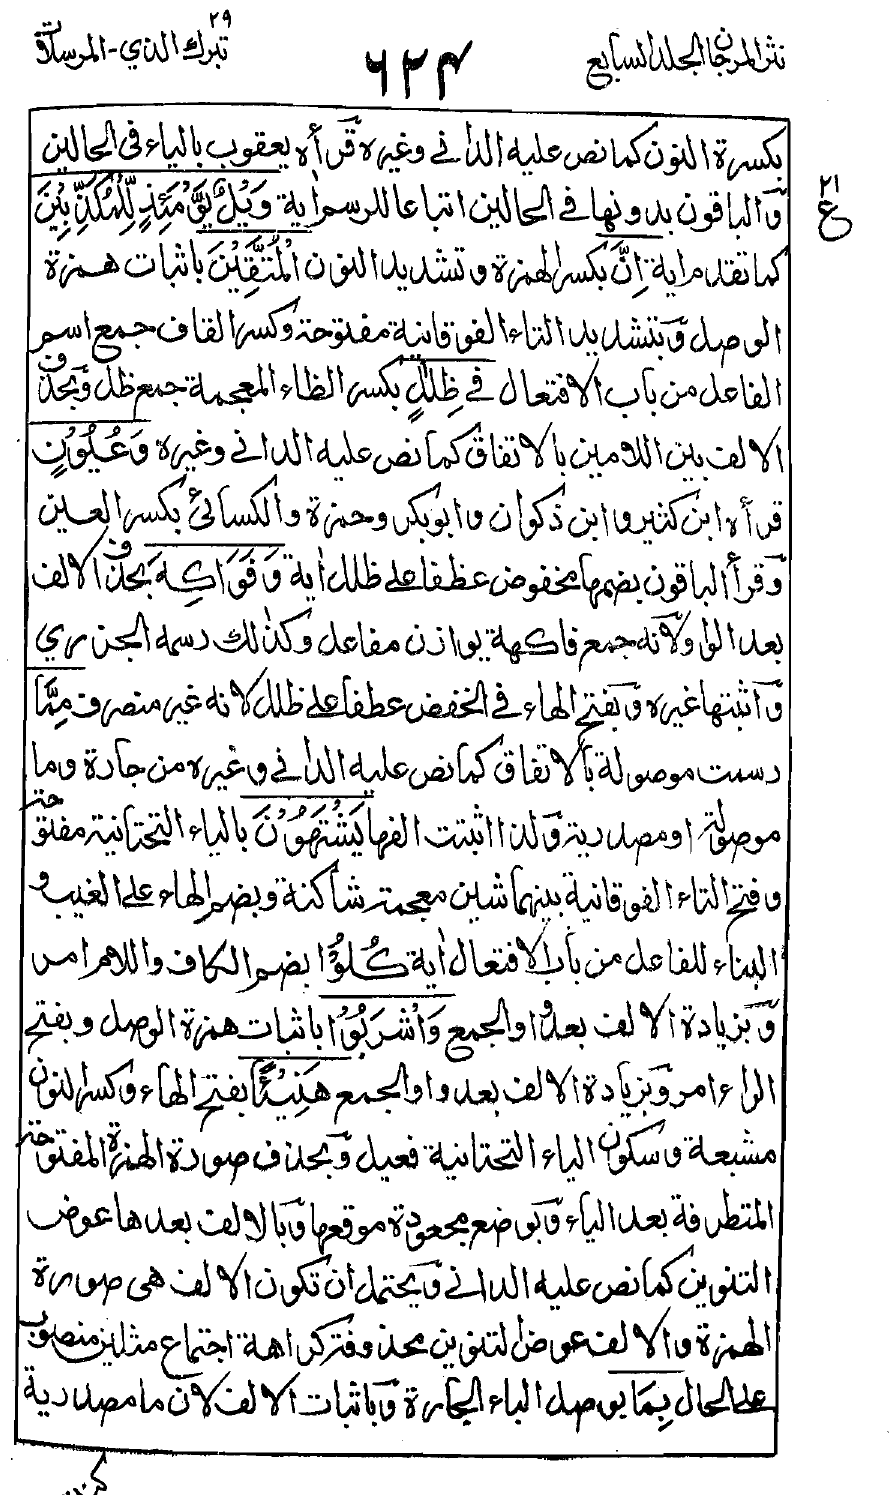 نثر المرجان الجلد السابع
٦٢٤
٢٩
تبرك الذي - المرسلات
بكسرة النون كما نص عليه الداني وغيره قرأه يعقوب بالياء في الحالين
٢١
ع
والباقون بدونها في الحالين اتباعا للرسم اٰية وَيْلٌ يَّوْمَئِذٍ لِّلْمُكَذِّبِيْنَ
كما تقدم اٰية اِنَّ بكسر الهمزة وتشديد النون الْمُتَّقِيْنَ باثبات همزة
الوصل وبتشديد التاء الفوقانية مفتوحة وكسر القاف جمع اسم
الفاعل من باب الافتعال فِيْ ظِلٰلٍ بكسر الظاء المعجمة جمع ظل وبحذف
الالف بين اللامين بالاتفاق كما نص عليه الداني وغيره وَعُيُوْنٍ
قرأه ابن كثير وابن ذكوان وابوبكر وحمزة والكسائي بكسر العين
وقرأ الباقون بضمها مخفوض عطفا على ظلل اٰية وَفَوَاكِهَ بحذف الالف
بعد الواو لانه جمع فاكهة يوازن مفاعل وكذلك رسمه الجزري
واثبتها غيره وبفتح الهاء في الخفض عطفا على ظلل لانه غير منصرف مِمَّا
رسمت موصولة بالاتفاق كما نص عليه الداني وغيره من جارة وما
موصولة او مصدرية ولذا اثبتت الفها يَشْتَهُوْنَ بالياء التحتانية مفتوحة
وفتح التاء الفوقانية بينهما شين معجمة ساكنة وبضم الهاء على الغيب و
البناء للفاعل من باب الافتعال اٰية كُلُوْا بضم الكاف واللام امر
وبزيادة الالف بعد واو الجمع وَاشْرَبُوْا باثبات همزة الوصل وبفتح
الراء امر وبزيادة الالف بعد واو الجمع هَنِيْٓئًا بفتح الهاء وكسر النون
مشبعة وسكون الياء التحتانية فعيل وبحذف صورة الهمزة المفتوحة
المتطرفة بعد الياء وبوضع مجعودة موقعها وبالالف بعدها عوض
التنوين كما نص عليه الداني ويحتمل ان تكون الالف هي صورة
الهمزة والالف عوض التنوين محذوفة كراهة اجتماع مثلين منصوب
على الحال بِمَا بوصل الباء الجارة وباثبات الالف لان ما مصدرية